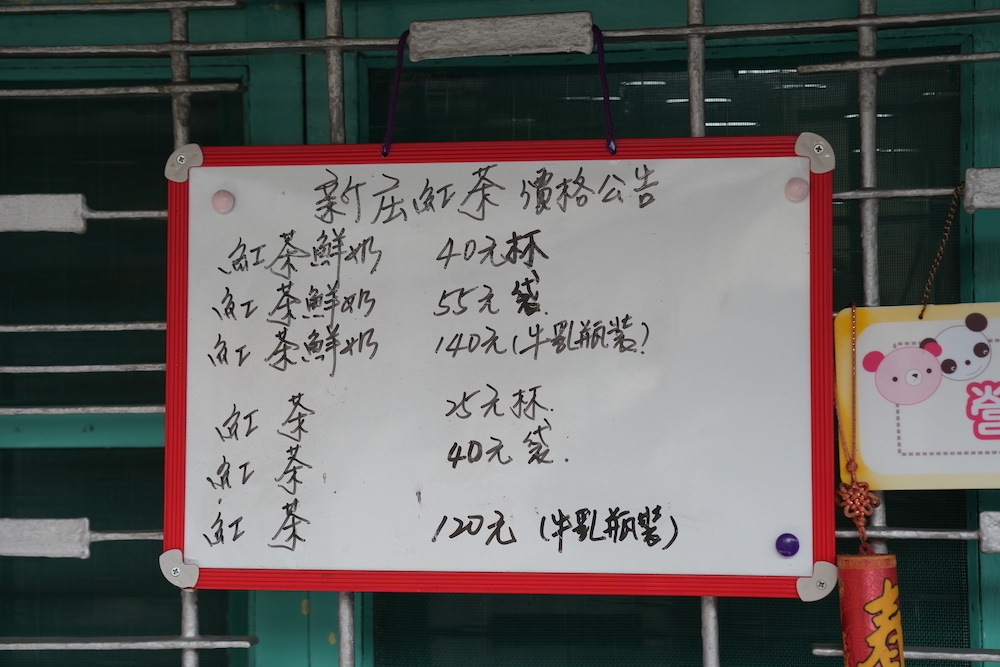 新庄紅茶 價格公告
紅茶鮮奶 40元杯
紅茶鮮奶 55元袋.
紅茶鮮奶 140元(牛乳瓶裝)
紅茶 25元杯.
紅茶 40元袋.
紅茶 120元(牛乳瓶裝)
營
春